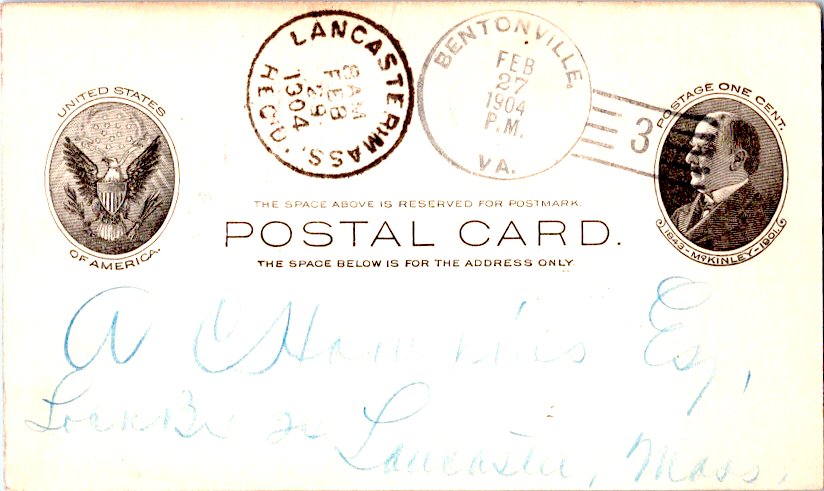 LANCASTER, MASS.
8 AM
FEB
29
1904
REC'D.
BENTONVILLE,
FEB
27
1904
P.M.
VA.
3
UNITED STATES
OF AMERICA.
POSTAGE ONE CENT.
1843-McKINLEY-1901.
THE SPACE ABOVE IS RESERVED FOR POSTMARK.
POSTAL CARD.
THE SPACE BELOW IS FOR THE ADDRESS ONLY
A C Esq,
Lock Box
Lancaster, Mass.